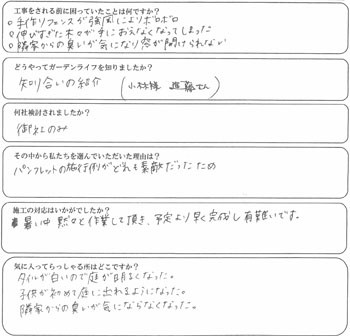 工事をされる前に困っていたことは何ですか?
○手作りフェンスが強風によりボロボロ
○伸びすぎた木々が手におえなくなってしまった
○隣家からの臭いが気になり窓が開けられない
どうやってガーデンライフを知りましたか?
知り合いの紹介 (小林様 進藤さん)
何社検討されましたか?
御社のみ
その中から私たちを選んでいただいた理由は?
パンフレットの施行例がどれも素敵だったため
施工の対応はいかがでしたか?
暑い中黙々と作業して頂き、予定より早く完成し有難いです。
気に入ってらっしゃる所はどこですか?
タイルが白いので庭が明るくなった。
子供が初めて庭に出れるようになった。
隣家からの臭いが気にならなくなった。